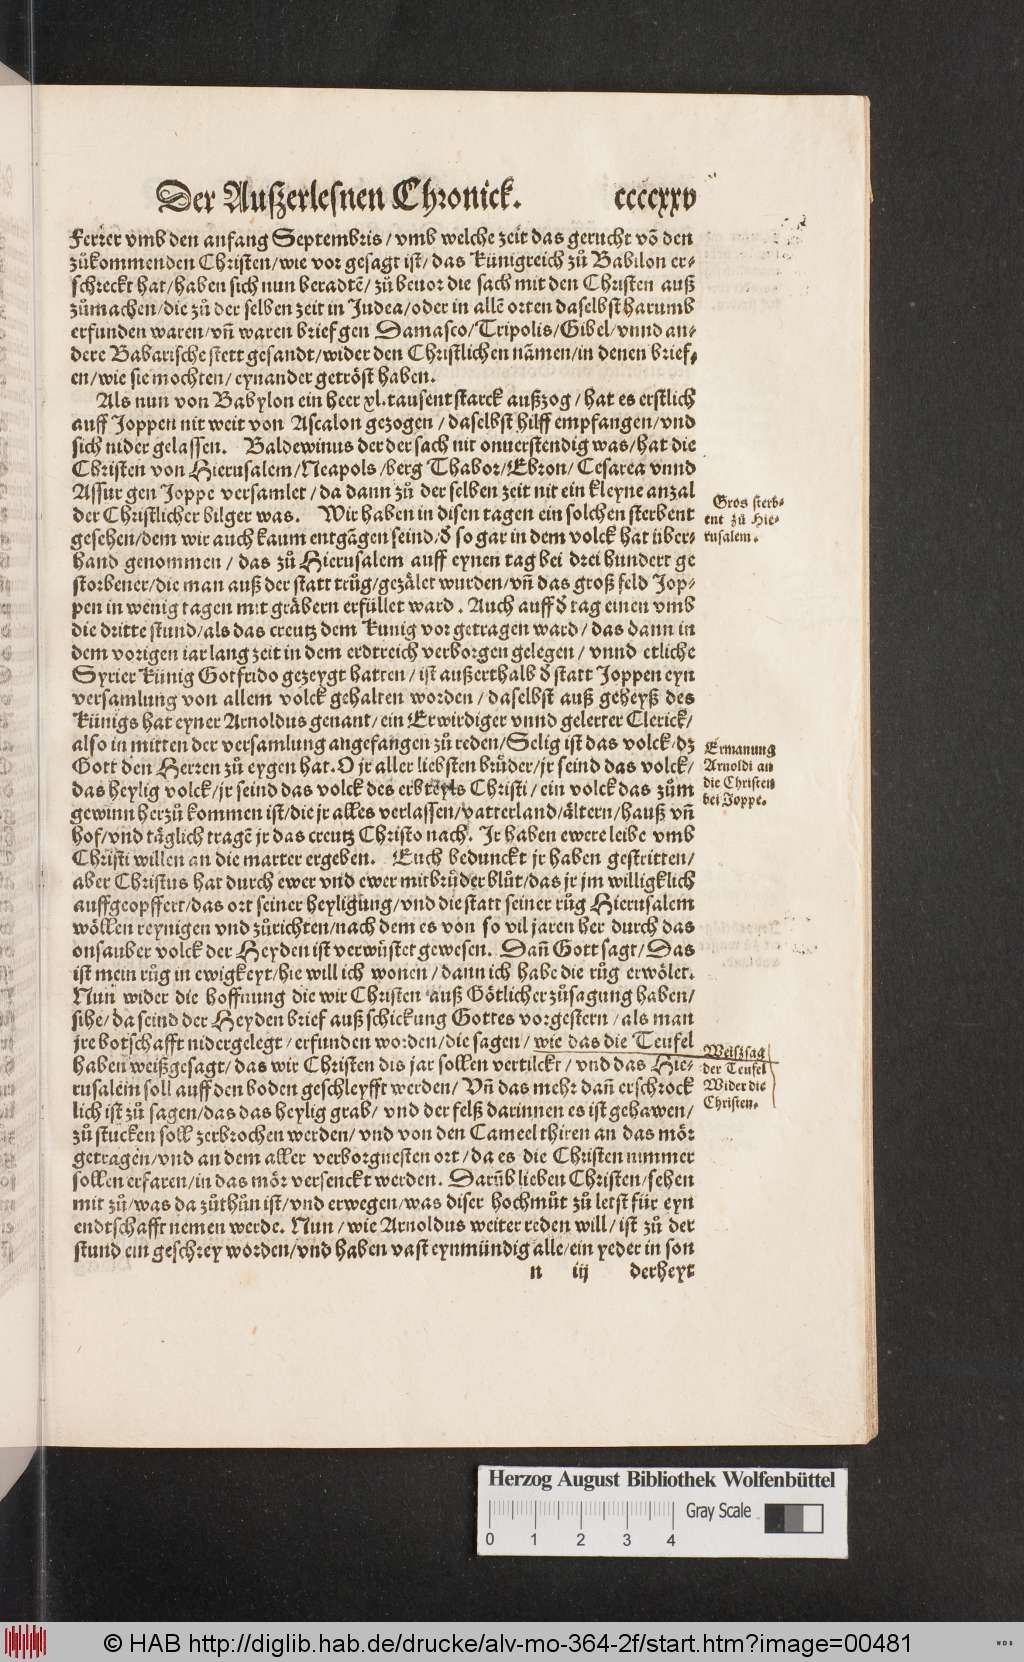 Der Außerlesnen Chronick. ccccxxv
Ferrer vmb den anfang Septembris / vmb welche zeit das gerucht võ den
zůkommenden Christen / wie vor gesagt ist / das Künigreich zů Babilon er-
schreckt hat / haben sich nun beradtẽ / zů beuor die sach mit den Christen auß
zůmachen / die zů der selben zeit in Judea / oder in allẽ orten daselbst harumb
erfunden waren / vñ waren brief gen Damasco / Tripolis / Gibel / vnnd an-
dere Babarische stett gesandt / wider den Christlichen nãmen / in denen brief-
en / wie sie mochten / eynander getröst haben.
Als nun von Babylon ein heer xl. tausent starck außzog / hat es erstlich
auff Joppen nit weit von Ascalon gezogen / daselbst hilff empfangen / vnd
sich nider gelassen. Baldewinus der der sach nit onuerstendig was / hat die
Christen von Hierusalem / Neapols / berg Thabor / Ebron / Cesarea vnnd
Assur gen Joppe versamlet / da dann zů der selben zeit nit ein kleyne anzal
der Christlicher bilger was. Wir haben in disen tagen ein solchen sterbent
gesehen / dem wir auch kaum entgãgen seind / d̕ so gar in dem volck hat über-
hand genommen / das zů Hierusalem auff eynen tag bei drei hundert ge
storbener / die man auß der statt trůg / gezälet wurden / vñ das groß feld Jop-
pen in wenig tagen mit gräbern erfüllet ward. Auch auff d̕ tag einen vmb
die dritte stund / als das creutz dem Kunig vor getragen ward / das dann in
dem vorigen iar lang zeit in dem erdtreich verborgen gelegen / vnnd etliche
Syrier Künig Gotfrido gezeygt hatten / ist außerthalb d̕ statt Joppen eyn
versamlung von allem volck gehalten worden / daselbst auß geheyß des
Künigs hat eyner Arnoldus genant / ein Erwirdiger vnnd gelerter Clerick /
also in mitten der versamlung angefangen zů reden / Selig ist das volck / dz
Gott den Herren zů eygen hat. O jr aller liebsten brůder / jr seind das volck /
das heylig volck / jr seind das volck des erbteyls Christi / ein volck das zům
gewinn herzů kommen ist / die jr alles verlassen / vatterland / ältern / hauß vñ
hof / vnd täglich tragẽ jr das creutz Christo nach. Jr haben ewere leibe vmb
Christi willen an die marter ergeben. Euch bedunckt jr haben gestritten /
aber Christus hat durch ewer vnd ewer mitbrůder blůt / das jr jm willigklich
auffgeopffert / das ort seiner heyligung / vnd die statt seiner růg Hierusalem
wöllen reynigen vnd zůrichten / nach dem es von so vil jaren her durch das
onsauber volck der Heyden ist verwüstet gewesen. Dañ Gott sagt / Das
ist mein růg in ewigkeyt / hie will ich wonen / dann ich habe die růg erwölet.
Nun wider die hoffnung die wir Christen auß Götlicher zůsagung haben /
sihe / da seind der Heyden brief auß schickung Gottes vorgestern / als man
jre botschafft nidergelegt / erfunden worden / die sagen / wie das die Teufel
haben weißgesagt / das wir Christen dis jar sollen vertilckt / vnd das Hie-
rusalem soll auff den boden geschleyfft werden / Vñ das mehr dañ erschrock
lich ist zů sagen / das das heylig grab / vnd der felß darinnen es ist gehawen /
zů stucken soll zerbrochen werden / vnd von den Cameel thiren an das mör
getragen / vnd an dem aller verborgnesten ort / da es die Christen nimmer
sollen erfaren / in das mör versenckt werden. Darũb lieben Christen / sehen
mit zů / was da zůthůn ist / vnd erwegen / was diser hochmůt zů letst für eyn
endtschafft nemen werde. Nun / wie Arnoldus weiter reden will / ist zů der
stund ein geschrey worden / vnd haben vast eynmündig alle / ein yeder in son
n iij derheyt
Gros sterb-
ent zů Hie-
rusalem.
Ermanung
Arnoldi an
die Christen
bei Joppe.
Weißsag
der Teufel
Wider die
Christen.
Herzog August Bibliothek Wolfenbüttel
Gray Scale
0 1 2 3 4
© HAB http://diglib.hab.de/drucke/alv-mo-364-2f/start.htm?image=00481